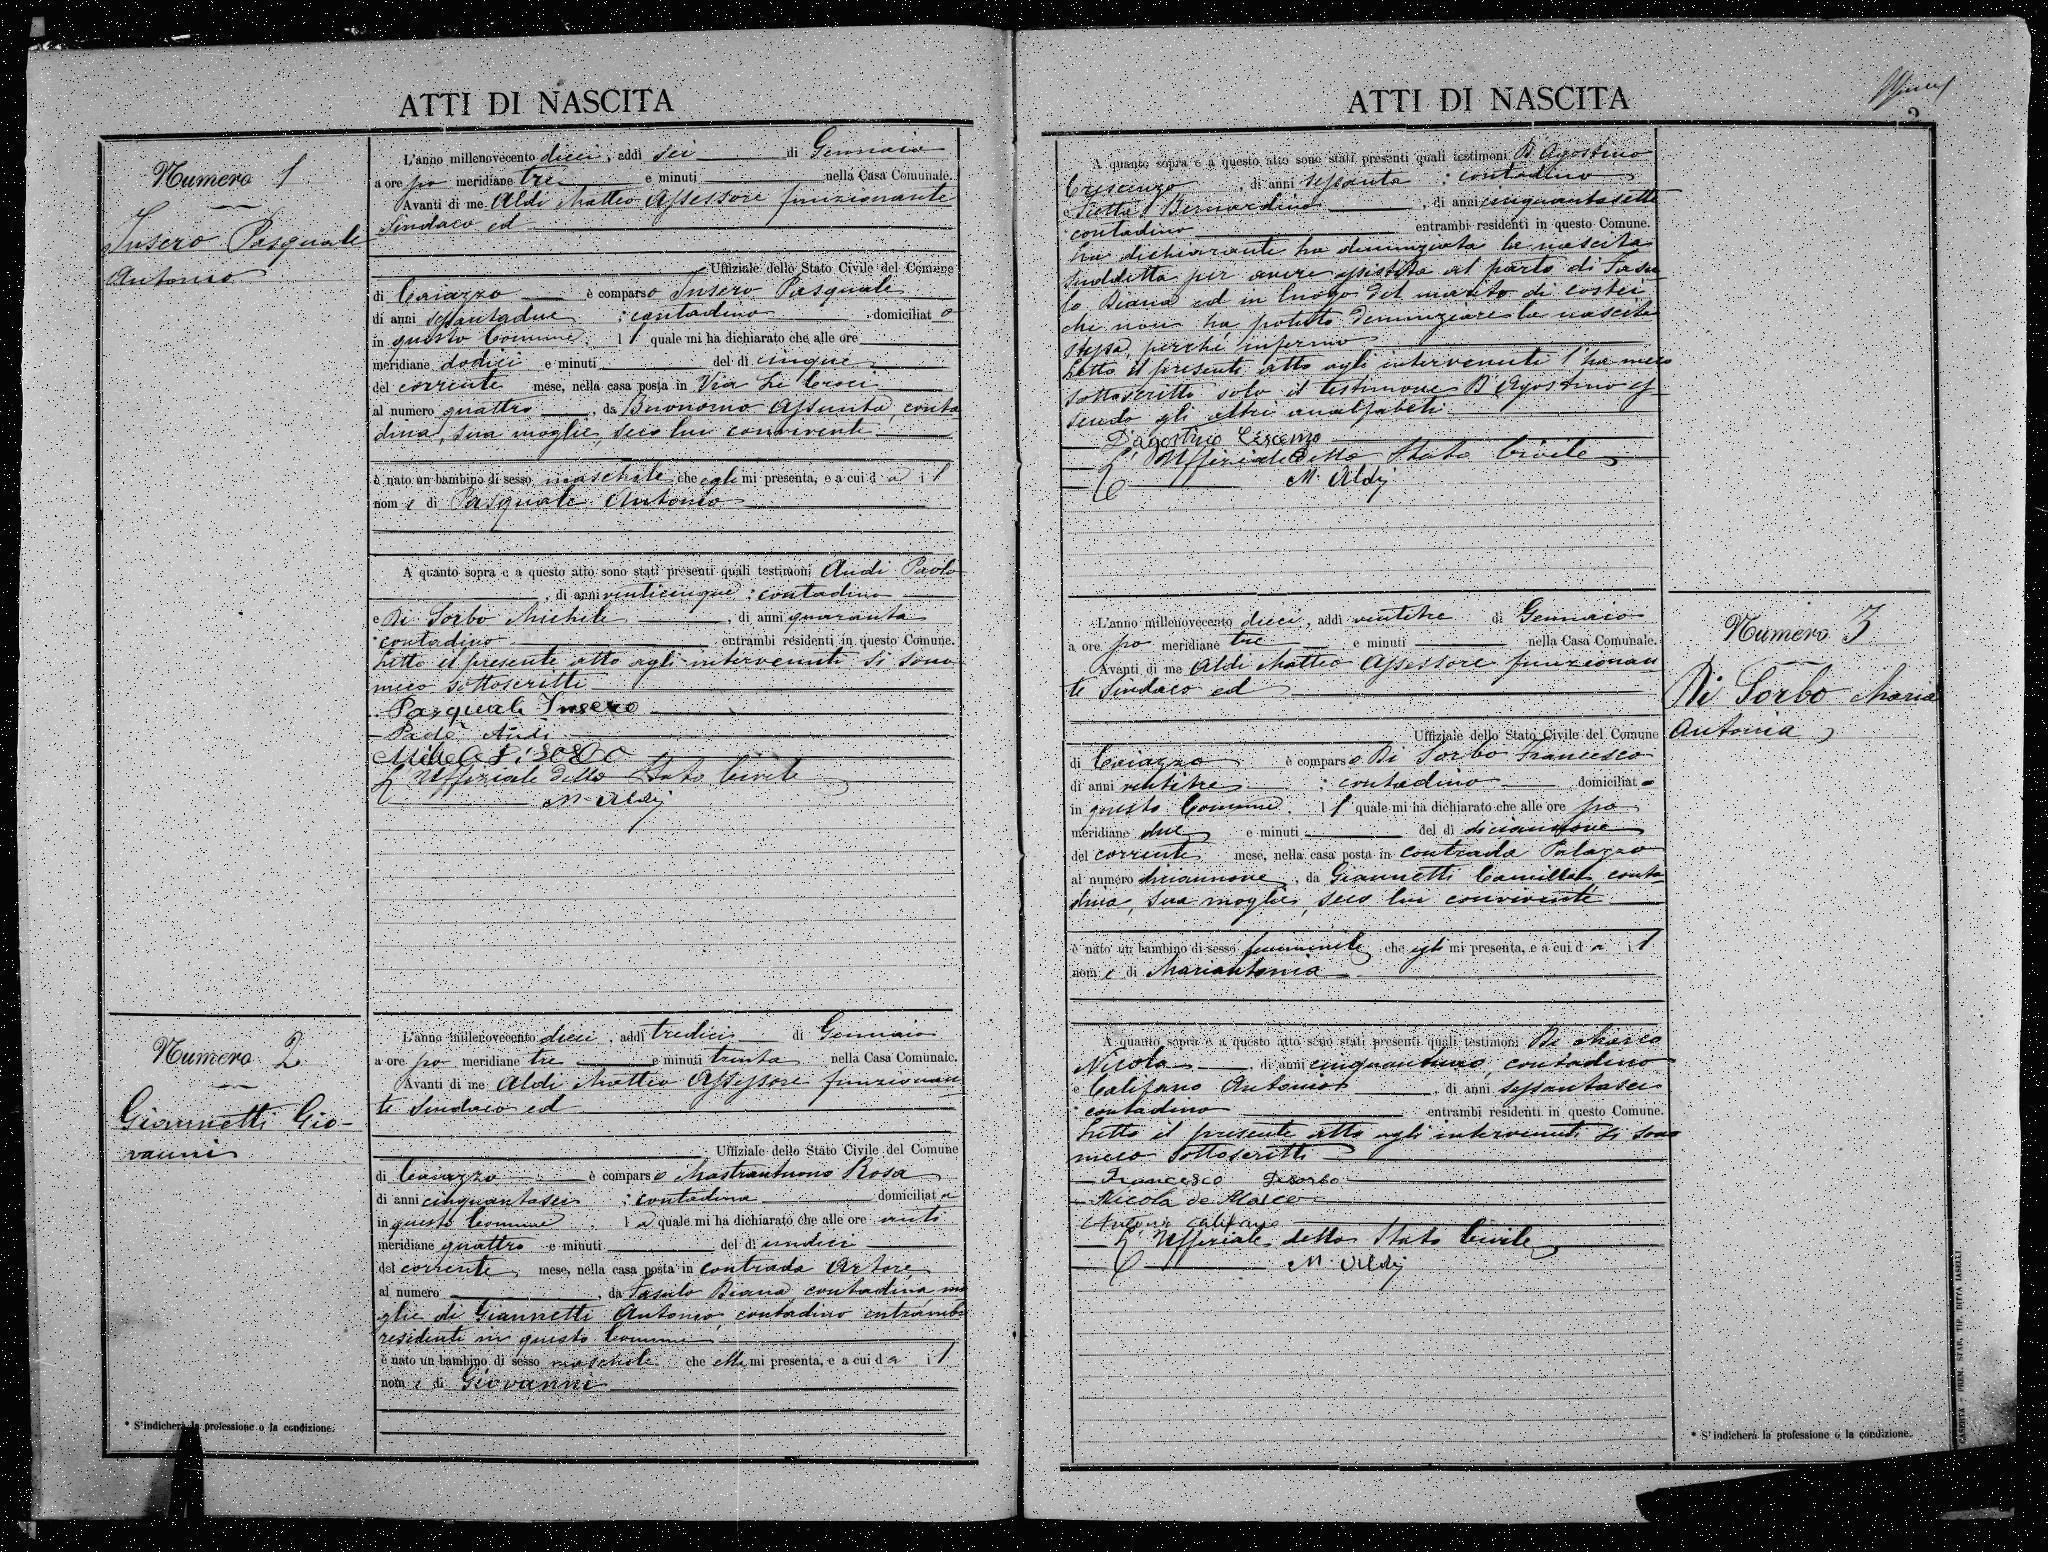 ATTI DI NASCITA
Numero 1
Insero Pasquale
Antonio
L'anno millenovecento dieci, addì sei di Gennaio
a ore po meridiane tre e minuti nella Casa Comunale.
Avanti di me Aldi Matteo Assessore funzionante
Sindaco ed
Uffiziale dello Stato Civile del Comune
di Caiazzo è comparso Insero Pasquale
di anni sessantadue : contadino domiciliato
in questo Comune, il quale mi ha dichiarato che alle ore
meridiane dodici e minuti del dì cinque
del corrente mese, nella casa posta in Via Tre Croci
al numero quattro, da Buonomo Assunta, conta
dina, sua moglie, seco lui convivente
è nato un bambino di sesso maschile che egli mi presenta, e a cui dà il
nome di Pasquale Antonio
A quanto sopra e a questo atto sono stati presenti quali testimoni Audi Paolo
, di anni venticinque : contadino
e Di Sorbo Michele, di anni quaranta
contadino entrambi residenti in questo Comune.
Letto il presente atto agli intervenuti si sono
meco sottoscritti
Pasquale Insero
Paolo Audi
L'Uffiziale dello Stato Civile
M. Aldi
Numero 2
Giannetti Gio-
vanni
L'anno millenovecento dieci, addì tredici di Gennaio
a ore po meridiane tre e minuti trenta nella Casa Comunale.
Avanti di me Aldi Matteo Assessore funzionan
te Sindaco ed
Uffiziale dello Stato Civile del Comune
di Caiazzo è comparsa Mastrantuono Rosa
di anni cinquantasei : contadina domiciliata
in questo Comune, la quale mi ha dichiarato che alle ore anti
meridiane quattro e minuti del dì undici
del corrente mese, nella casa posta in contrada
al numero, da Fasulo Diana, contadina mo
glie di Giannetti Antonio, contadino entrambi
residenti in questo Comune
è nato un bambino di sesso maschile che ella mi presenta, e a cui dà il
nome di Giovanni
* S'indicherà la professione o la condizione.
ATTI DI NASCITA
2
A quanto sopra e a questo atto sono stati presenti quali testimoni D'Agostino
Crescenzo, di anni sessanta : contadino
e Bernardino, di anni cinquantasette
contadino entrambi residenti in questo Comune.
La dichiarante ha denunziata la nascita
suddetta per avere assistito al parto di Fasu
lo Diana ed in luogo del marito di costei
che non ha potuto denunziare la nascita
stessa, perché infermo
Letto il presente atto agli intervenuti l'ha meco
sottoscritto solo il testimone D'Agostino es
sendo gli altri analfabeti.
D'agostino Crescenzo
L'Uffiziale dello Stato Civile
M. Aldi
Numero 3
Di Sorbo Maria
Antonia
L'anno millenovecento dieci, addì ventitre di Gennaio
a ore po meridiane tre e minuti nella Casa Comunale.
Avanti di me Aldi Matteo Assessore funzionan
te Sindaco ed
Uffiziale dello Stato Civile del Comune
di Caiazzo è comparso Di Sorbo Francesco
di anni ventitre : contadino domiciliato
in questo Comune, il quale mi ha dichiarato che alle ore po
meridiane due e minuti del dì diciannove
del corrente mese, nella casa posta in contrada Palazzo
al numero diciannove, da Giannetti Camilla, conta
dina, sua moglie, seco lui convivente
è nato un bambino di sesso femminile che egli mi presenta, e a cui dà il
nome di Mariantonia
A quanto sopra e a questo atto sono stati presenti quali testimoni De Marco
Nicola, di anni cinquantuno, contadino
e Califano Antonio, di anni sessantasei
contadino entrambi residenti in questo Comune.
Letto il presente atto agli intervenuti si sono
meco sottoscritti
Francesco Disorbo
Nicola de Marco
Antonio Califano
L'Uffiziale dello Stato Civile
M. Aldi
* S'indicherà la professione o la condizione.
CASERTA - PREM. STAB. TIP. DITTA IASELLI